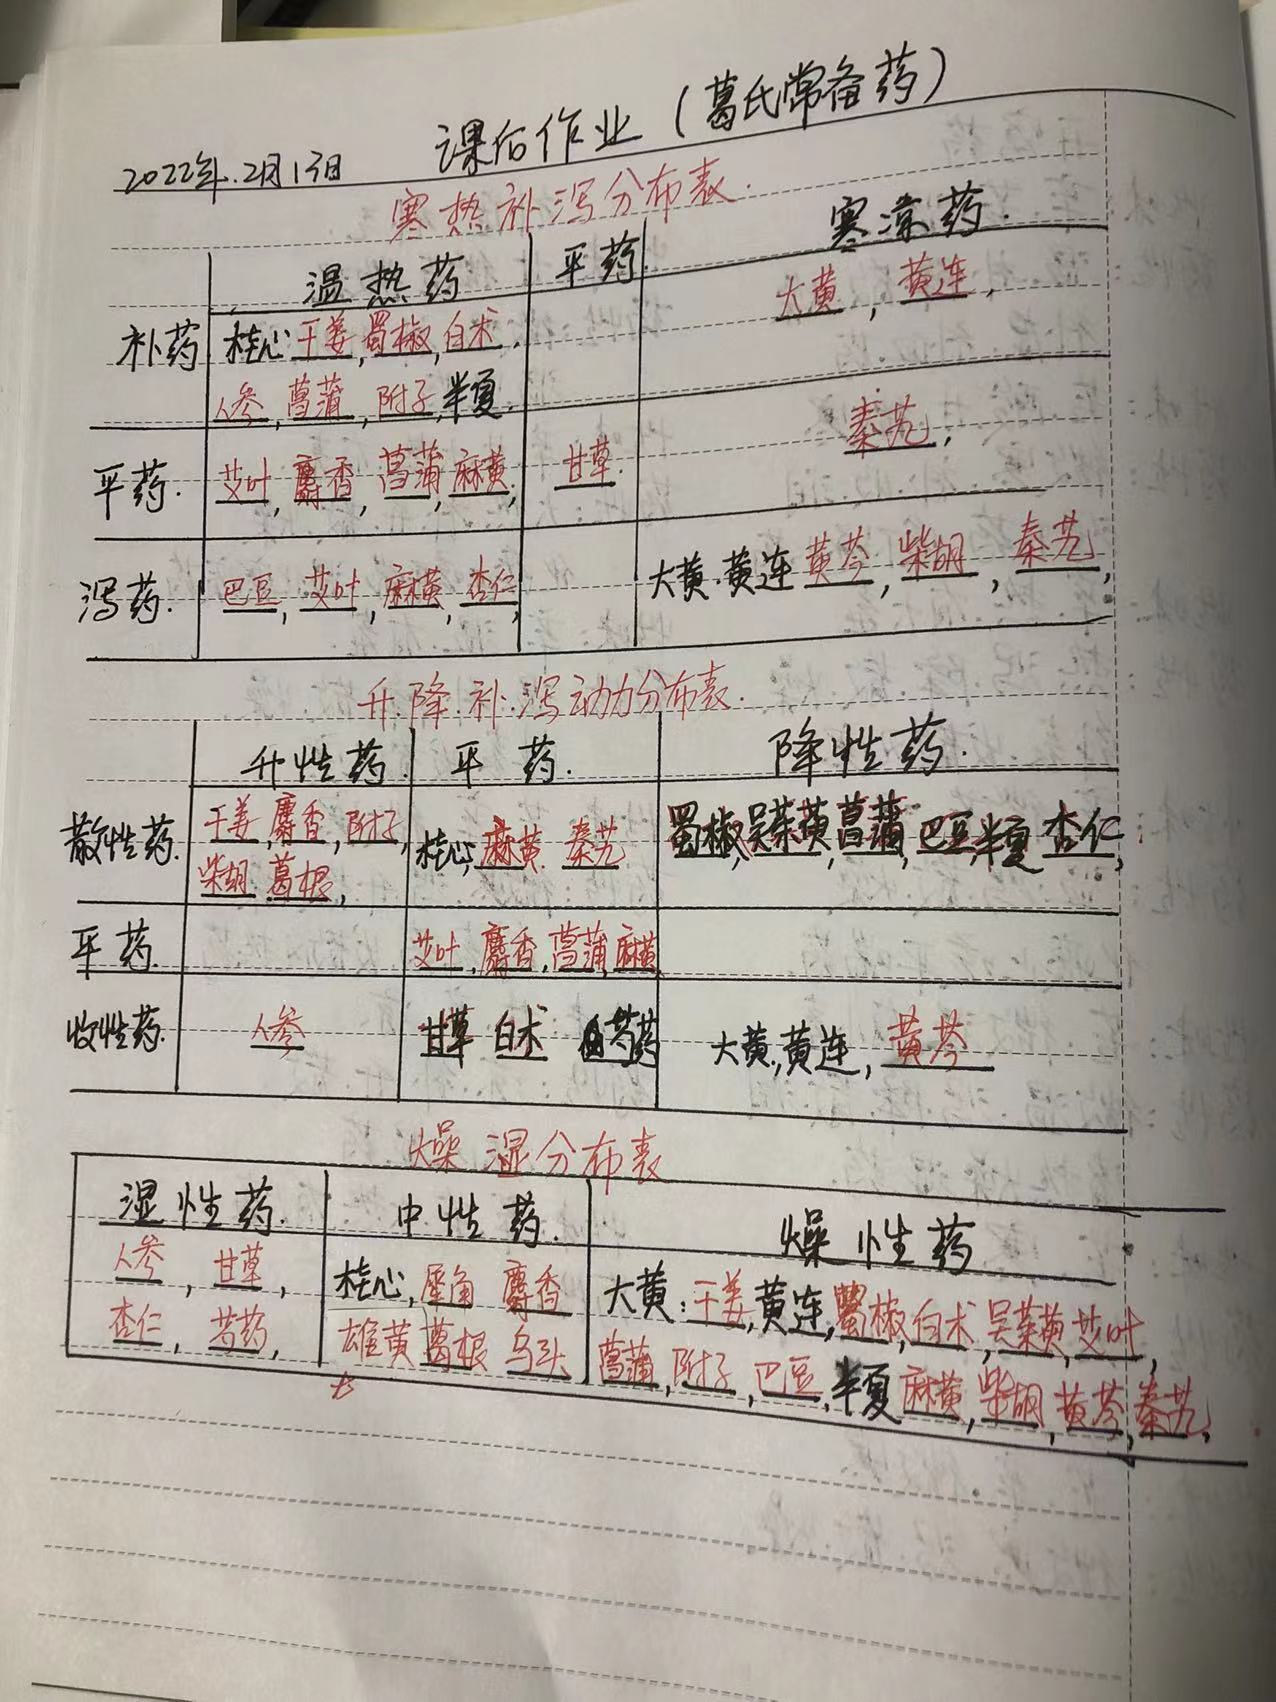 2022年.2月13日 课后作业（葛氏常备药）
寒热补泻分布表.
温热药 平药. 寒凉药.
补药 桂心 干姜,蜀椒,白术. 大黄,黄连,
人参,菖蒲,附子,半夏.
平药. 艾叶,麝香,菖蒲,麻黄, 甘草. 秦艽,
泻药. 巴豆,艾叶,麻黄,杏仁, 大黄.黄连 黄芩,柴胡,秦艽,
升.降.补.泻动力分布表.
升性药. 平药. 降性药.
散性药. 干姜,麝香,附子, 桂心,麻黄.秦艽 蜀椒,吴茱萸,菖蒲,巴豆,半夏 杏仁,
柴胡.葛根,
平药. 艾叶,麝香,菖蒲 麻黄
收性药. 人参 甘草 白术 白芍药 大黄,黄连,黄芩
燥湿分布表
湿性药. 中性药. 燥性药
人参,甘草, 桂心,犀角 麝香 大黄.干姜,黄连,蜀椒,白术,吴茱萸,艾叶,
杏仁,芍药, 雄黄 葛根 乌头 菖蒲,附子,巴豆,半夏 麻黄,柴胡,黄芩,秦艽,